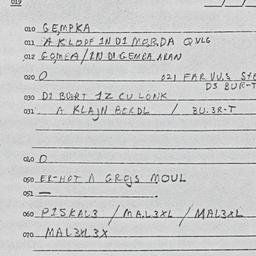 019
010 GEMPKA
011 A KLOPF IN DI MORDA
012 GOMBA / IN DI GEMBA ARAN
020 O 021 FAR VU.S
DJ BUR-T
030 DI BURT IZ CU LONK
031 A KLAJN BERDL / BU.3R-T
040 O
050 ER-HOT A GROJS MOUL
051 —
060 PISKAL3 / MAL3XL / MAL3XL
070 MAL3XL3X